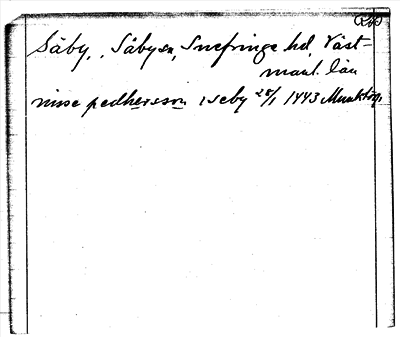 Säby, Säby sn, Snefringe hd, Väst-
manl. län
nisse pedhersson i seby 28/1 1443 Munktorp